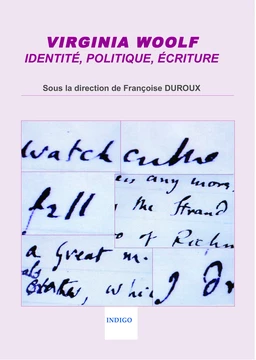 VIRGINIA WOOLF
IDENTITÉ, POLITIQUE, ÉCRITURE
Sous la direction de Françoise DUROUX
watch
any more
fell
the Strand
of Richm
a great m
, whi
INDIGO